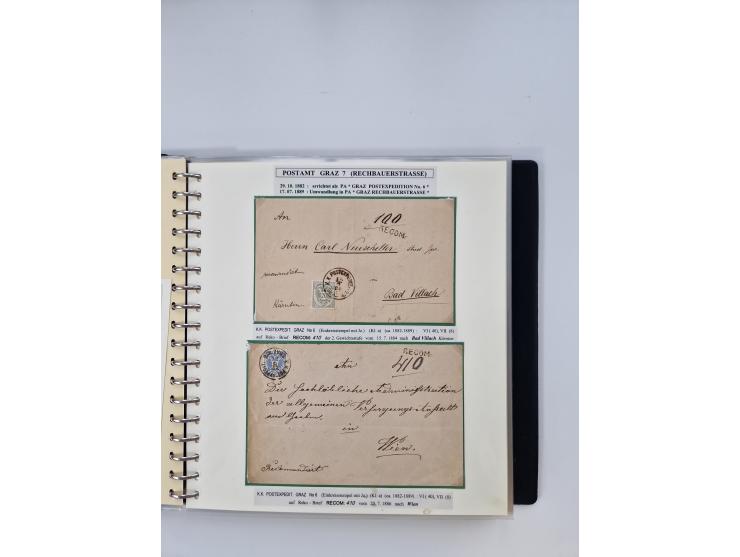 POSTAMT GRAZ 7 (RECHBAUERSTRASSE)
29. 10. 1882 : errichtet als PA * GRAZ POSTEXPEDITION No. 6 *
17. 07. 1889 : Umwandlung in PA * GRAZ RECHBAUERSTRASSE *
An
100
RECOM.
Herrn Carl
recomandirt
Bad Villach
Kärnten
K.K. POSTEXPEDIT. GRAZ No 6 (Einkreisstempel mit Jz.) (K1 a) (ca. 1882-1889) : VI ( 40), VII (8)
auf Reko - Brief RECOM: 410 der 2. Gewichtsstufe vom 15. 7. 1884 nach Bad Villach Kärnten
RECOM.
410
An
Die
der allgemeinen Versorgungs-Anstalt
in
Wien.
Recommandirt
K.K. POSTEXPEDIT. GRAZ No 6 (Einkreisstempel mit Jz.) (K1 a) (ca. 1882-1889) : VI ( 40), VII (8)
auf Reko - Brief RECOM: 410 vom 7. 1886 nach Wien